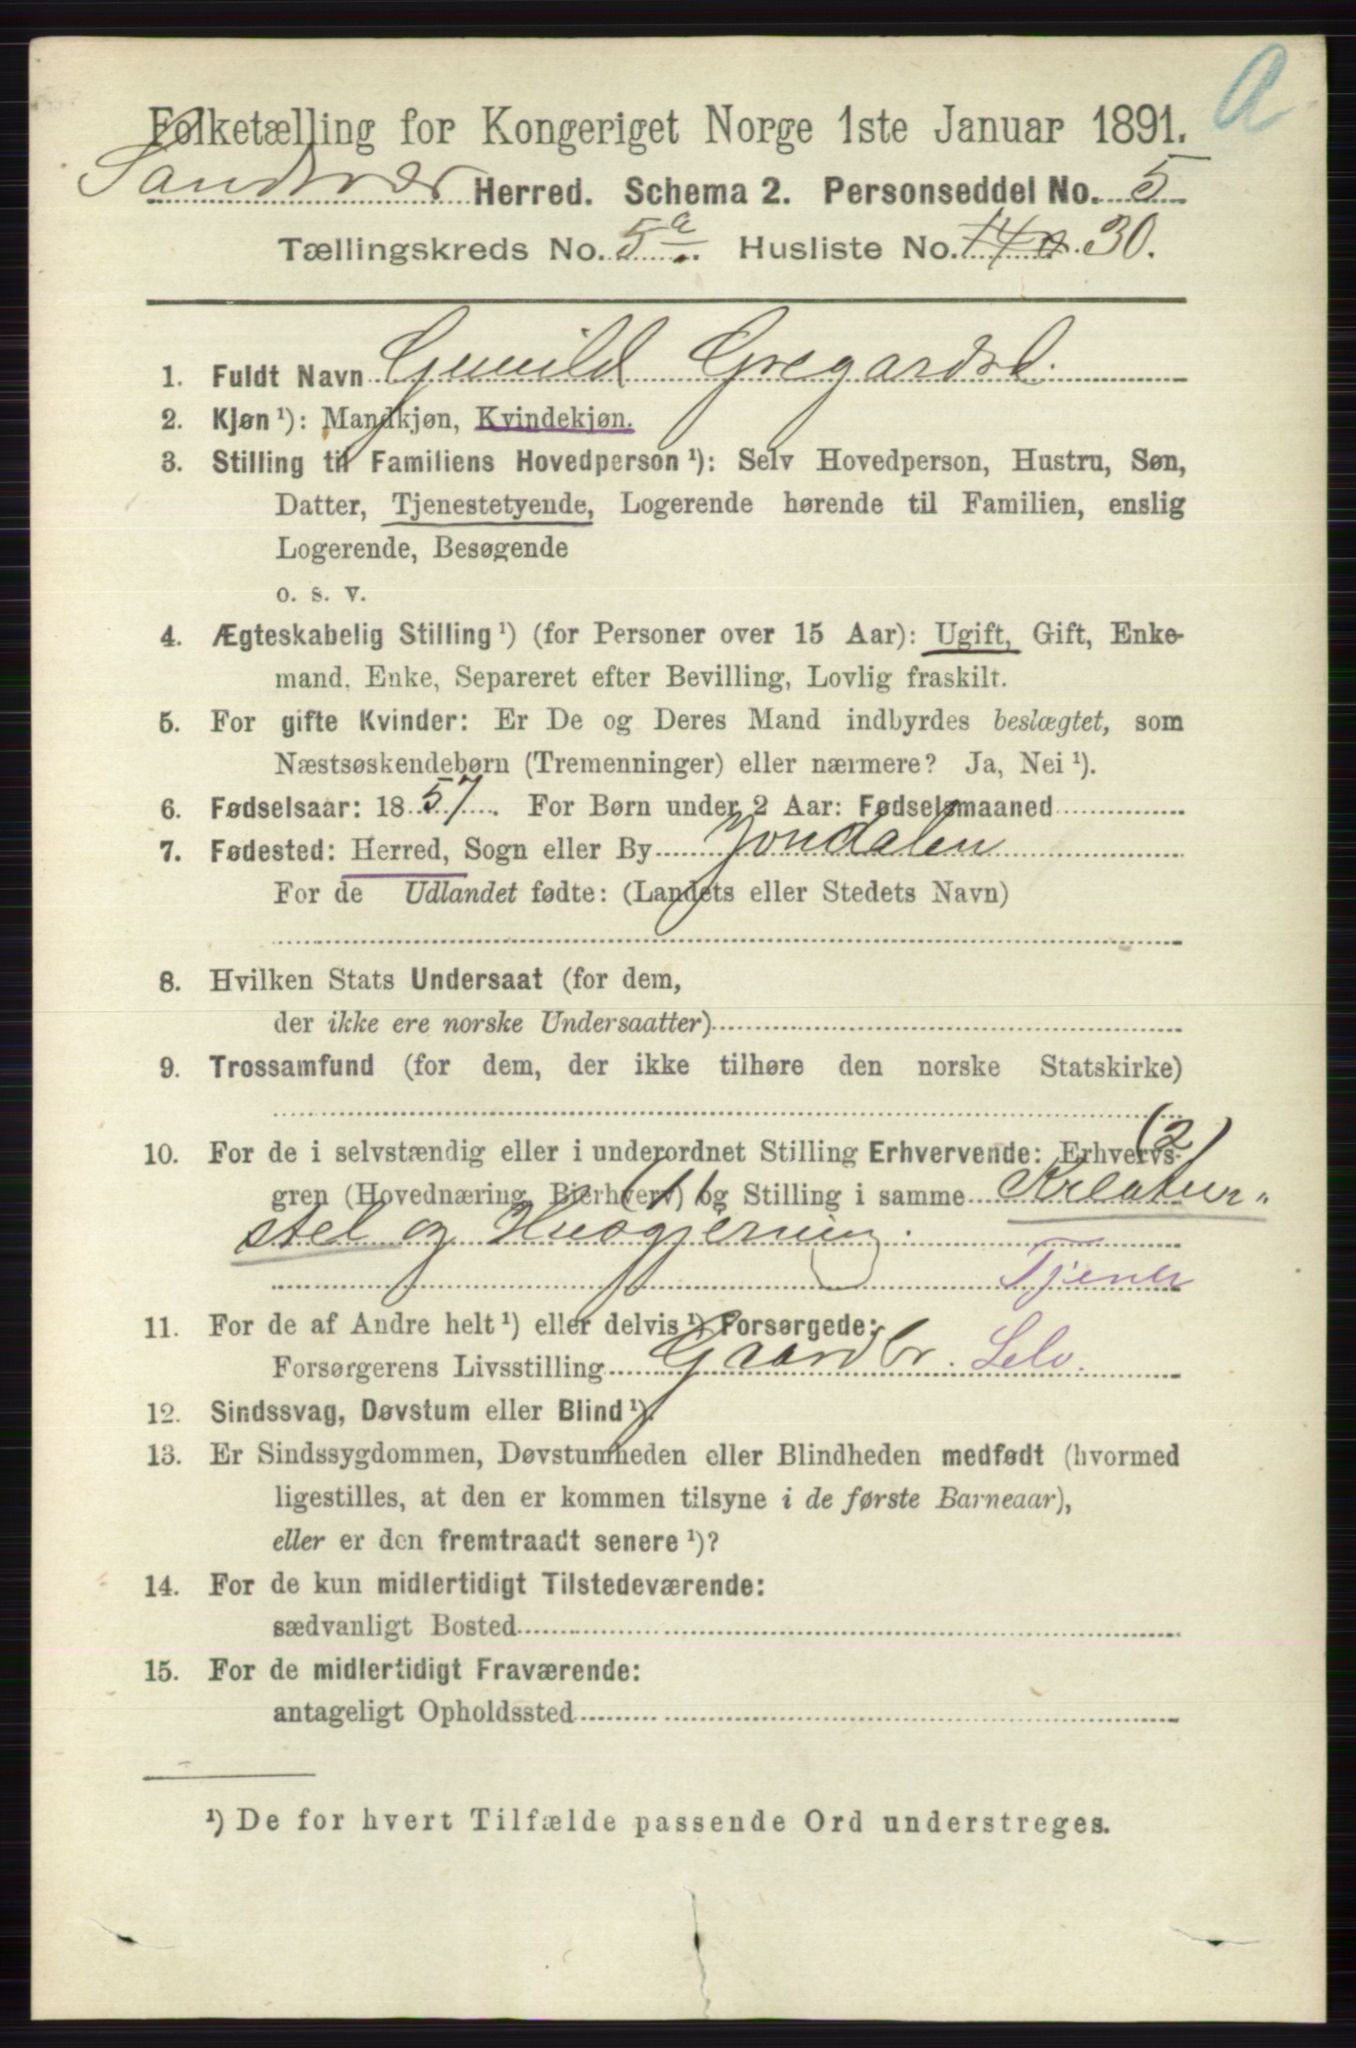 a
Folketælling for Kongeriget Norge 1ste Januar 1891.
Sandsvær Herred. Schema 2. Personseddel No. 5
Tællingskreds No. 5a. Husliste No. 14a 30.
1. Fuldt Navn Gunild Gregardsd.
2. Kjøn¹): Mandkjøn, Kvindekjøn.
3. Stilling til Familiens Hovedperson¹): Selv Hovedperson, Hustru, Søn,
Datter, Tjenestetyende, Logerende hørende til Familien, enslig
Logerende, Besøgende
o. s. v.
4. Ægteskabelig Stilling¹) (for Personer over 15 Aar): Ugift, Gift, Enke-
mand, Enke, Separeret efter Bevilling, Lovlig fraskilt.
5. For gifte Kvinder: Er De og Deres Mand indbyrdes beslægtet, som
Næstsøskendebørn (Tremenninger) eller nærmere? Ja, Nei¹).
6. Fødselsaar: 1857. For Børn under 2 Aar: Fødselsmaaned
7. Fødested: Herred, Sogn eller By Jondalen
For de Udlandet fødte: (Landets eller Stedets Navn)
8. Hvilken Stats Undersaat (for dem,
der ikke ere norske Undersaatter)
9. Trossamfund (for dem, der ikke tilhøre den norske Statskirke)
10. For de i selvstændig eller i underordnet Stilling Erhvervende: Erhvervs- (2)
gren (Hovednæring, Bierhverv) og Stilling i samme Kreatur-
(1)
stel og Husgjerning.
Tjener
11. For de af Andre helt¹) eller delvis¹) Forsørgede:
Forsørgerens Livsstilling Gaardbr. Selv.
12. Sindssvag, Døvstum eller Blind¹).
13. Er Sindssygdommen, Døvstumheden eller Blindheden medfødt (hvormed
ligestilles, at den er kommen tilsyne i de første Barneaar),
eller er den fremtraadt senere¹)?
14. For de kun midlertidigt Tilstedeværende:
sædvanligt Bosted
15. For de midlertidigt Fraværende:
antageligt Opholdssted
¹) De for hvert Tilfælde passende Ord understreges.